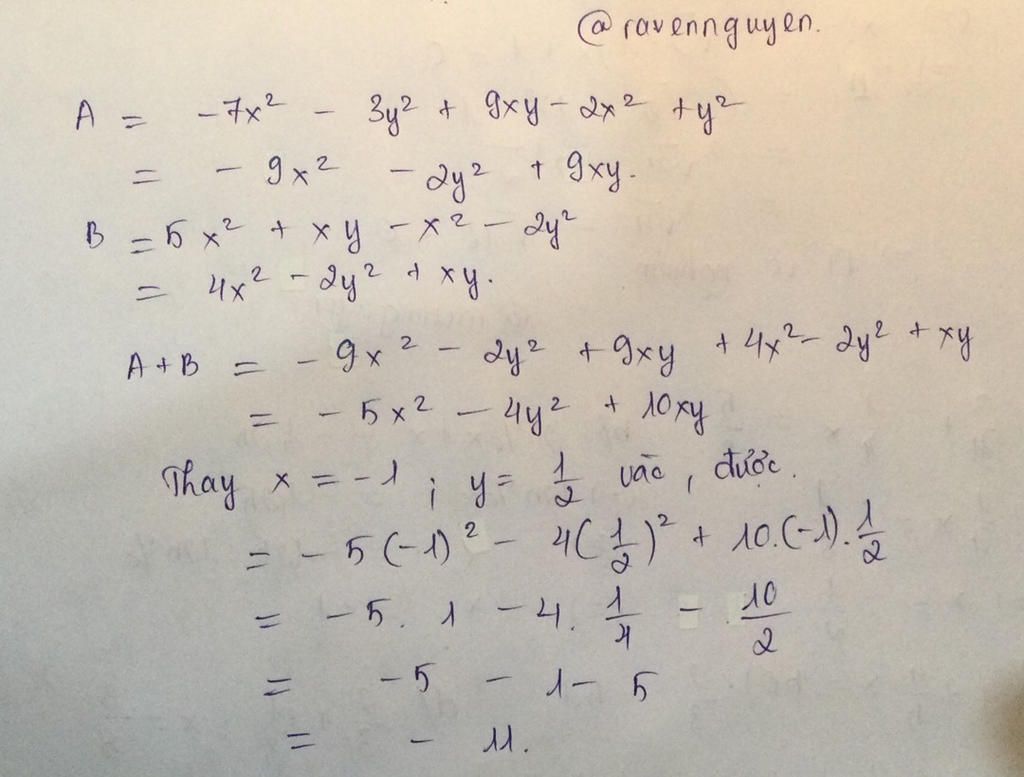 @ravennguyen.
A = -7x² - 3y² + 9xy - 2x² + y²
= - 9x² - 2y² + 9xy.
B = 5x² + xy - x² - 2y²
= 4x² - 2y² + xy.
A + B = - 9x² - 2y² + 9xy + 4x² - 2y² + xy
= - 5x² - 4y² + 10xy
Thay x = -1 ; y = 1/2 vào, được.
= - 5(-1)² - 4(1/2)² + 10.(-1).1/2
= - 5. 1 - 4. 1/4 - 10/2
= -5 - 1 - 5
= - 11.